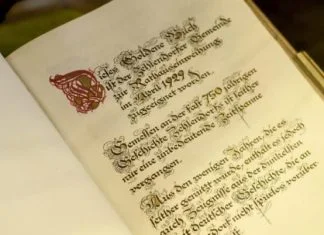 Dieses Goldene Buch
ist der Zehlendorfer Gemeinde
zur Rathauseinweihung
im April 1929
zugeeignet worden.
Gemessen an der fast 750 jährigen
Geschichte Zehlendorfs ist seither
nur eine unbedeutende Zeitspanne
vergangen.
Aus den wenigen Zeilen, die es
seither genutzt wurde, enthält es jedoch
auch Zeugnisse aus der dunkelsten
deutschen Geschichte, die an
dorf nicht spurlos vorüber